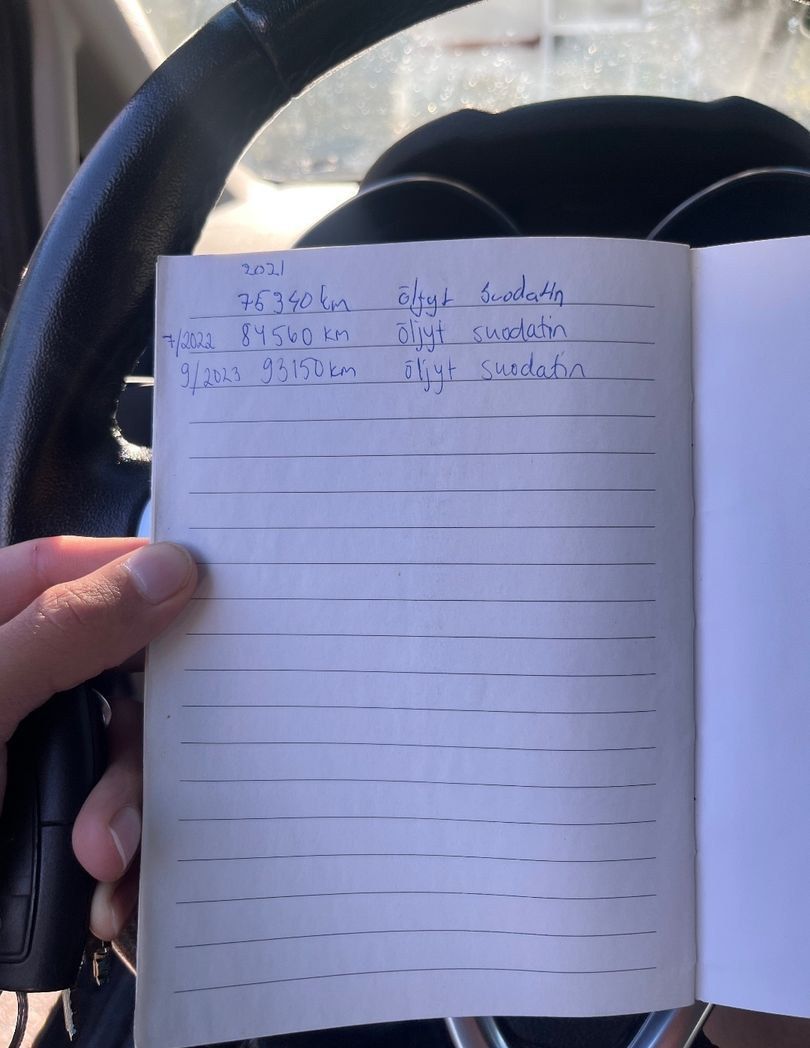 2021
75340 km öljyt suodatin
7/2022 84560 km öljyt suodatin
9/2023 93150 km öljyt suodatin